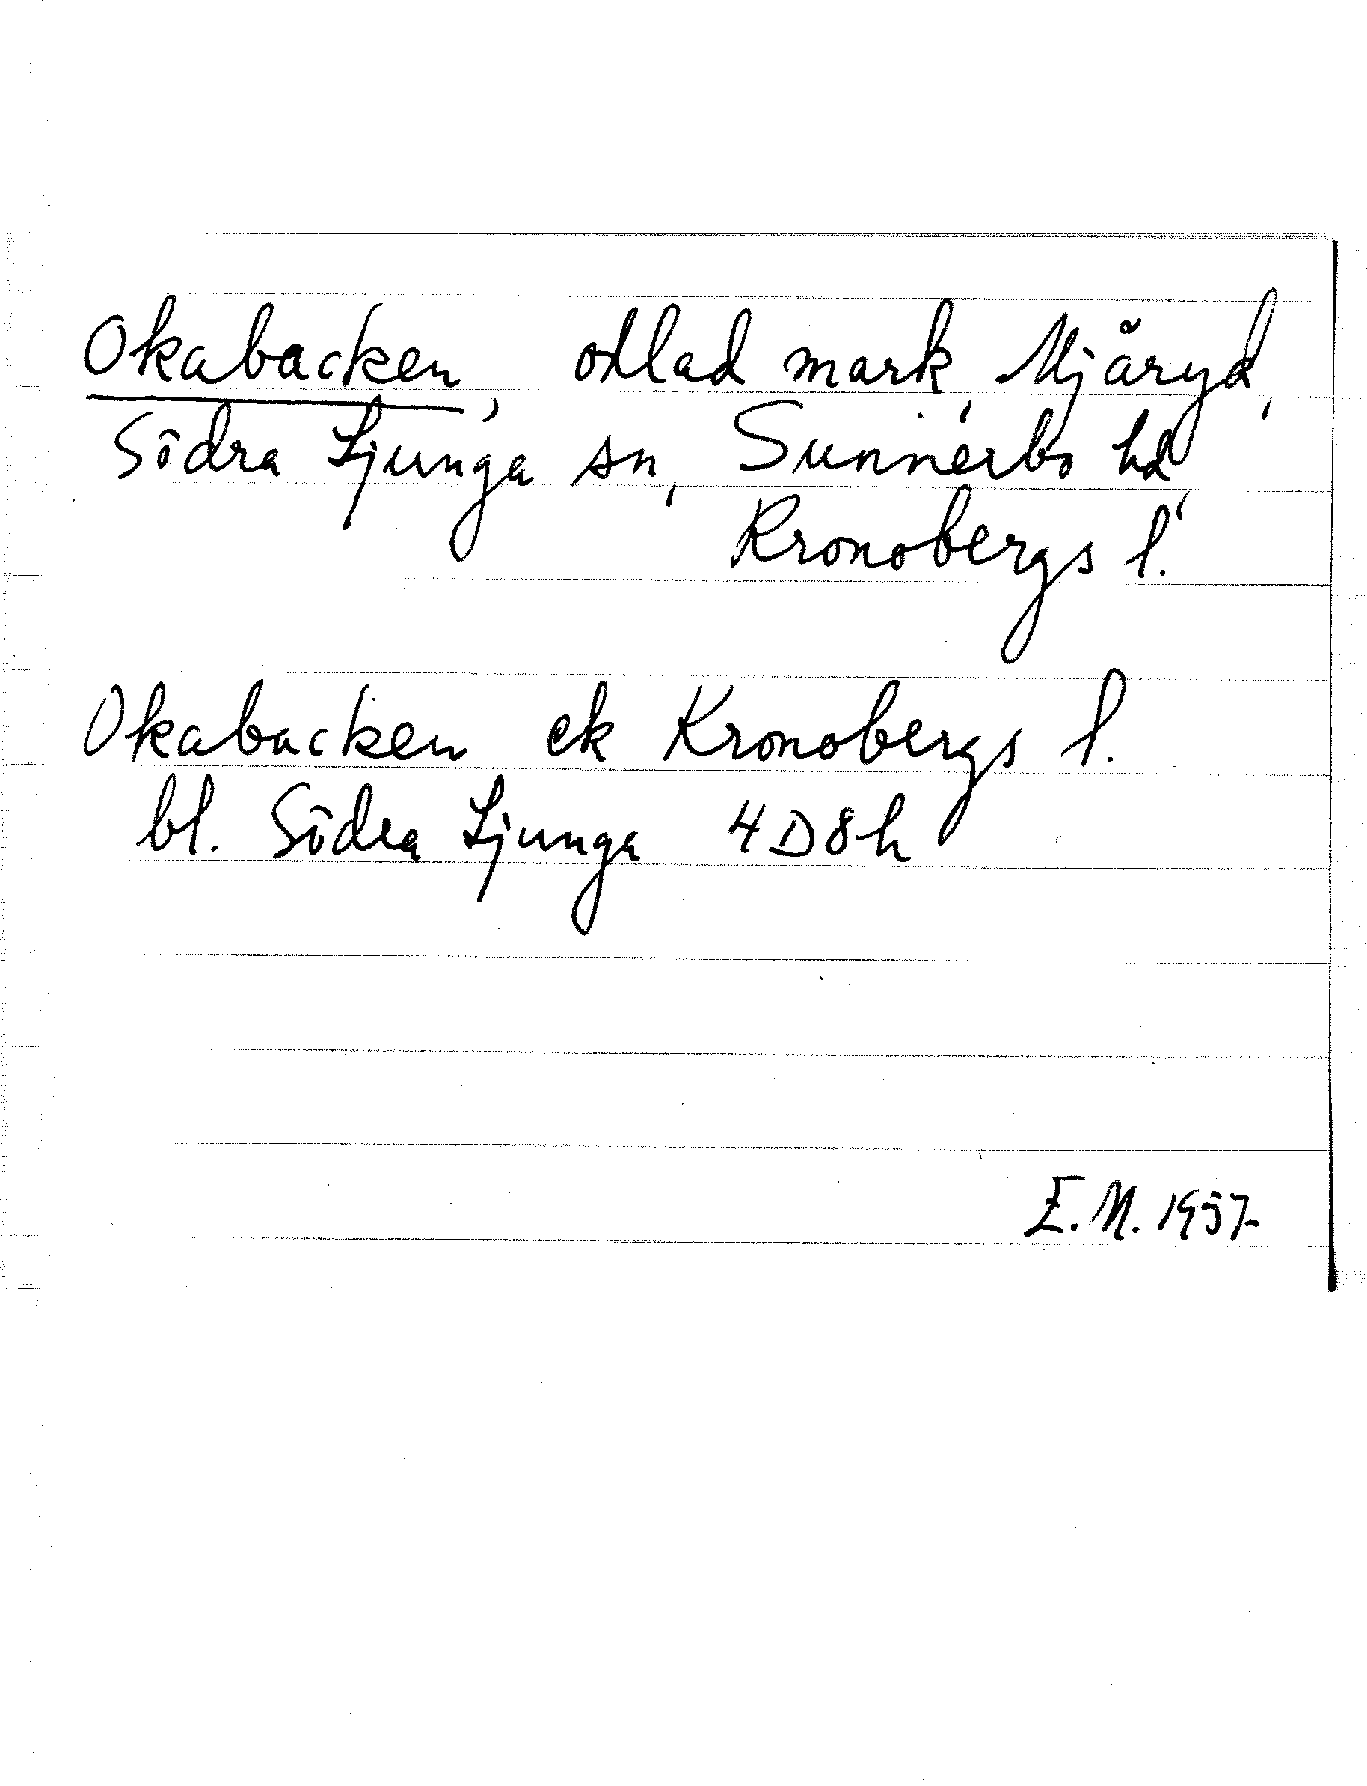 Okabacken, odlad mark, Mjäryd,
Södra Ljunga sn, Sunnerbo hd,
Kronobergs l.
Okabacken ek Kronobergs l.
bl. Södra Ljunga 4D8h
E.N. 1957